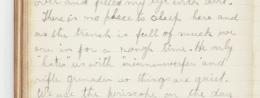 over and filled my eye with dirt.
There is no place to sleep here and
as the trench is full of much we
are in for a rough time. He only
"hates" us with "minnenwerfer" and
rifle grenades so things are quiet.
We use the periscope in the day